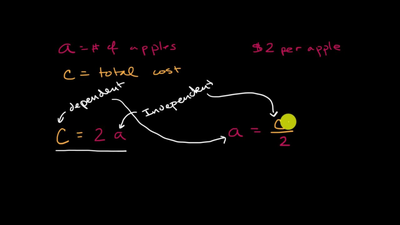 a = # of apples
$2 per apple
c = total cost
dependent
Independent
C = 2 a
a = c/2